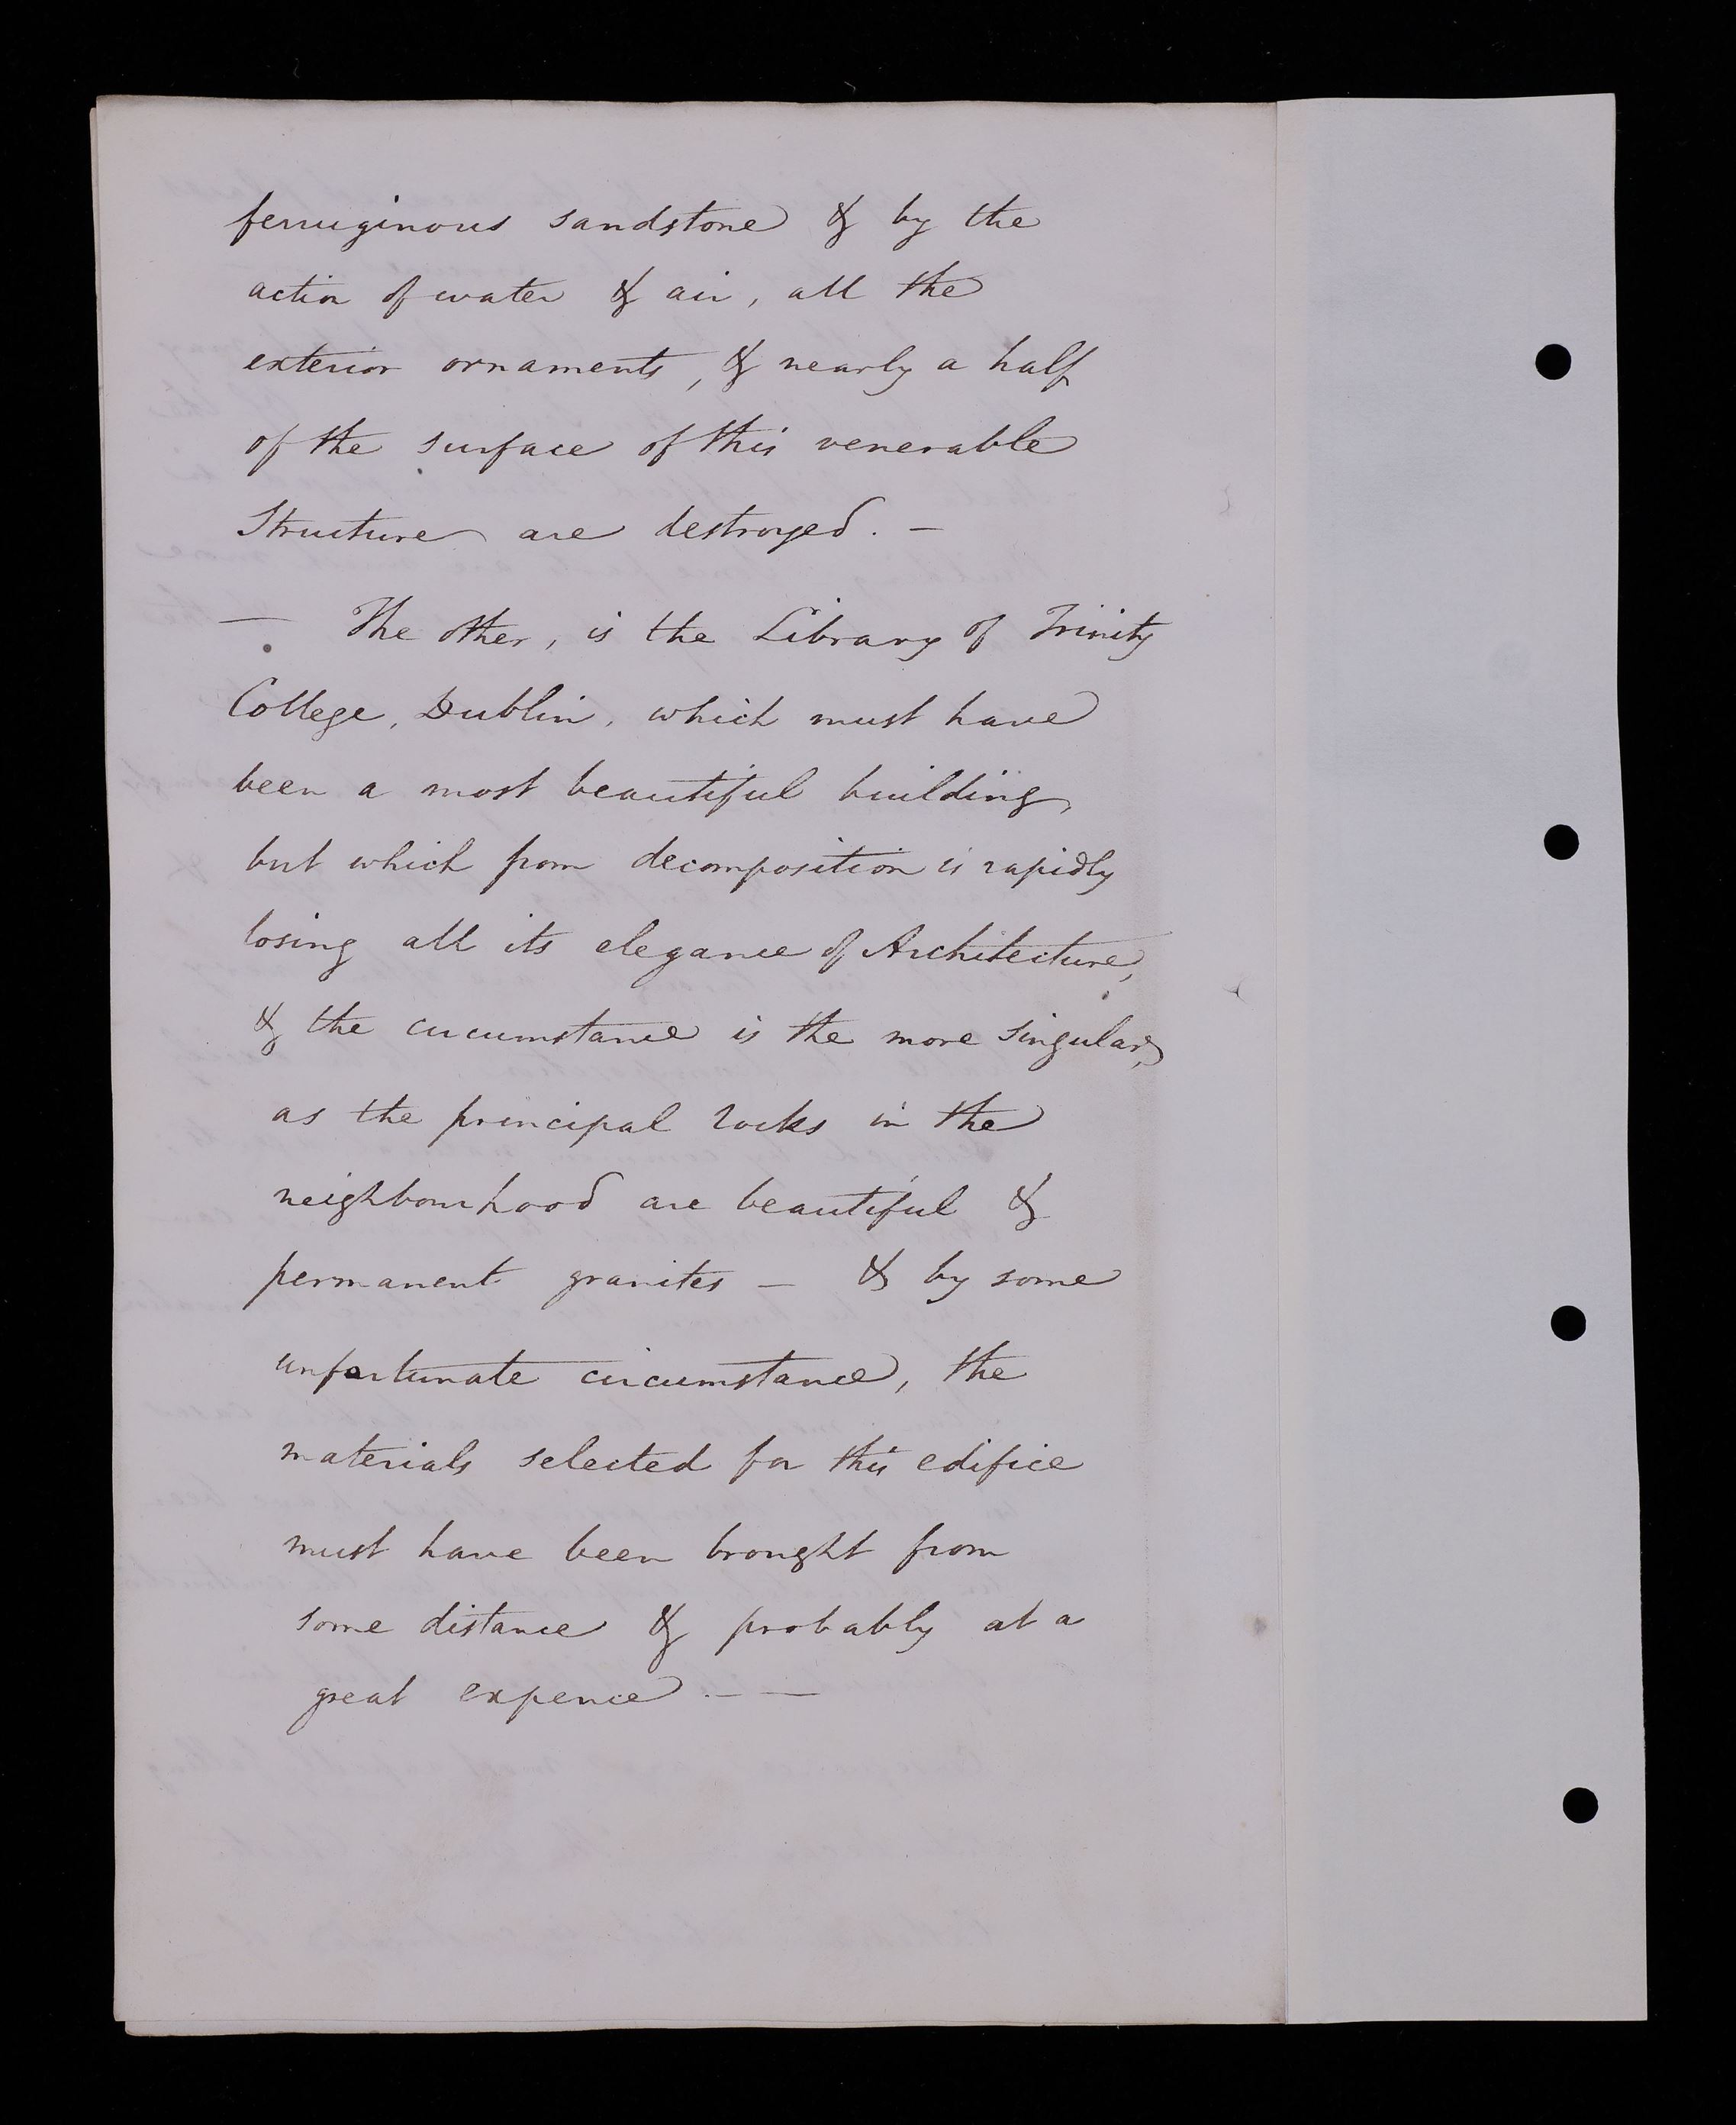 ferruginous sandstone & by the
action of water & air, all the
exterior ornaments, & nearly a half
of the surface of this venerable
Structure are destroyed. —
— The other, is the Library of Trinity
College, Dublin, which must have
been a most beautiful building,
but which from decomposition is rapidly
losing all its elegance of Architecture,
& the circumstance is the more singular,
as the principal rocks in the
neighbourhood are beautiful &
permanent granites — & by some
unfortunate circumstance, the
materials selected for this edifice
must have been brought from
some distance & probably at a
great expence. — —